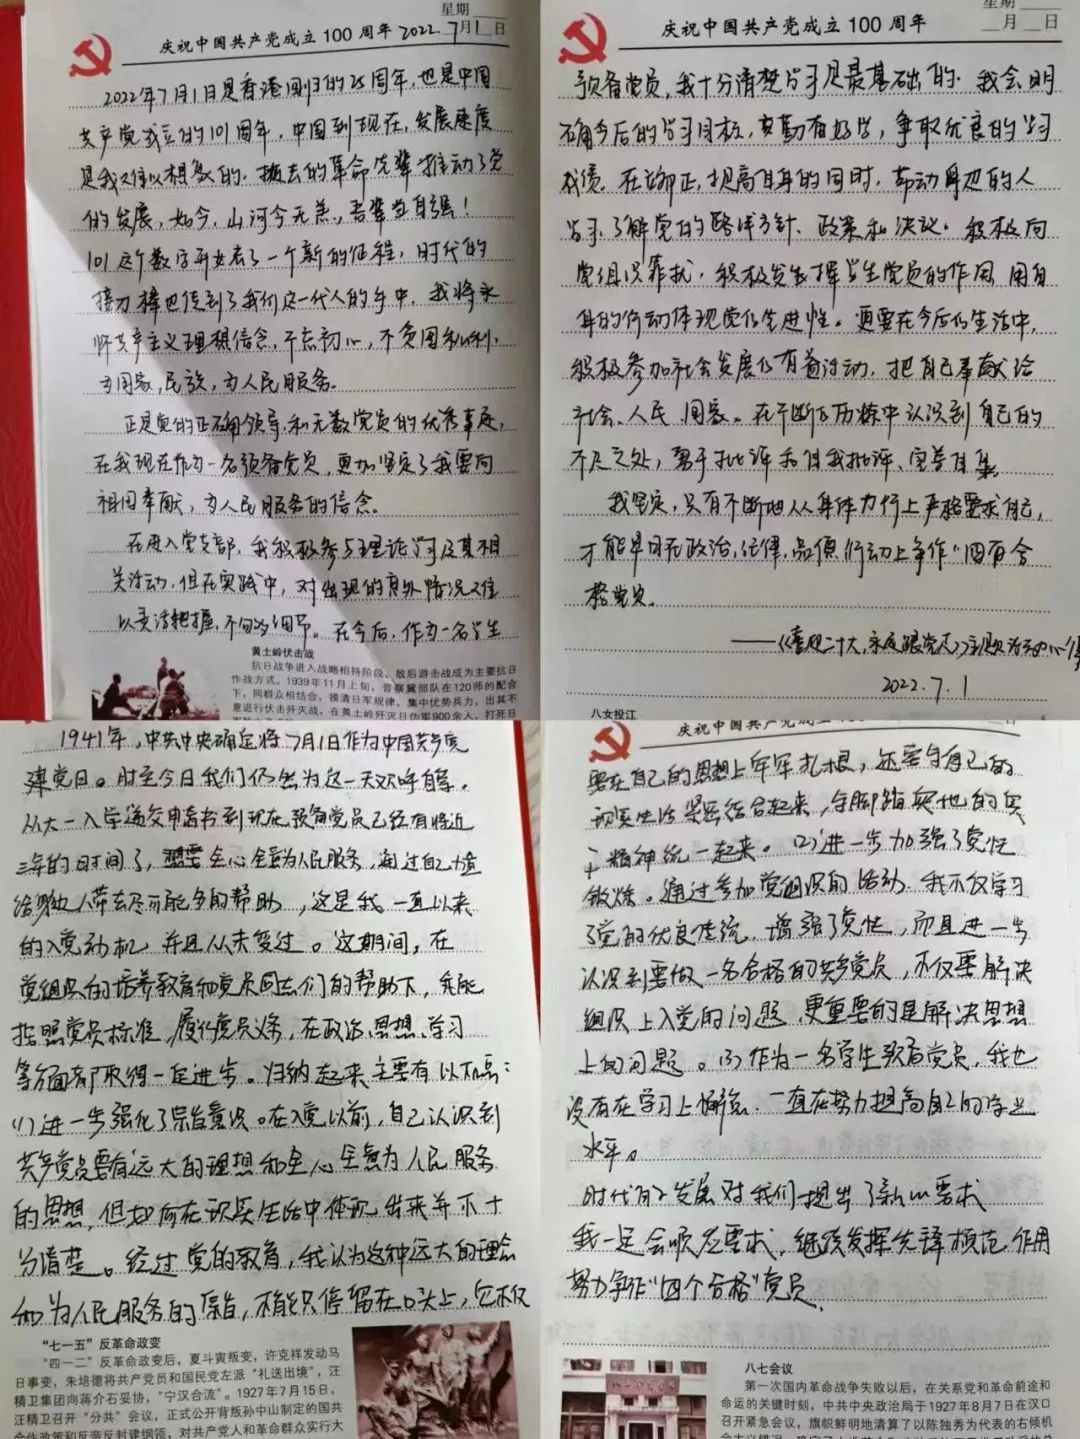 星期
庆祝中国共产党成立 100 周年 2022.7月1日
2022年7月1日是香港回归的25周年,也是中国
共产党成立的101周年,中国到现在,发展速度
是我难以想象的,拋去的革命先辈推动了党
的发展,如今,山河今无恙,吾辈当自强!
101这个数字开始着了一个新的征程,时代的
接力棒也传到了我们这一代人的手中,我将永
怀共产主义理想信念,不忘初心,不负国和人民,
为国家,民族,为人民服务。
正是党的正确领导,和无数党员的优秀事迹,
在我现在作为一名预备党员,更加坚定了我要向
祖国奉献,为人民服务的信念。
在进入党支部,我积极参与理论学习及其相
关活动,但在实践中,对出现的意外情况难
以灵活把握,不勾沟细节。在今后,作为一名学生
黄土岭伏击战
抗日战争进入战略相持阶段,敌后游击战成为主要抗日
作战方式。1939年11月上旬,晋察冀部队在120师的配合
下,同群众相结合,摸清日军规律,集中优势兵力,出其不
意进行伏击歼灭战,在黄土岭歼灭日伪军900余人,打死日
星期
庆祝中国共产党成立 100 周年 月 日
预备党员,我十分清楚学习是最基础的。我会明
确今后的学习目标,真勤奋好学,争取优良的学习
成绩。在端正,提高自身的同时,带动身边的人
学习、了解党的路线方针、政策和决议。积极向
党组织靠拢,积极发挥学生党员的作用,用自
身的行动体现党的先进性。更要在今后的生活中,
积极参加社会发展的有益活动,把自己奉献给
社会、人民、国家。在不断的历练中认识到自己的
不足之处,勇于批评和自我批评、完善自身。
我坚定,只有不断地从身体力行上严格要求自己,
才能早日在政治,纪律,品德,行动上争作“四有合
格党员。
——《喜迎二十大,永远跟党走》主题活动心得
2022.7.1
八女投江
1941年,中共中央确定将7月1日作为中国共产党
建党日。时至今日我们仍然为这一天欢呼自豪。
从大一入学递交申请书到现在预备党员已经有将近
三年的时间了,想要全心全意为人民服务,通过自己 
给身边人带去尽可能多的帮助,这是我一直以来
的入党动机,并且从未变过。这期间,在
党组织的培养教育和党员同志们的帮助下,我能
按照党员标准,履行党员义务,在政治、思想、学习
等方面都取得一定进步。归纳起来主要有以下点:
(1)进一步强化了宗旨意识。在入党以前,自己认识到
共产党员要有远大的理想和全心全意为人民服务
的思想,但如何在现实生活中体现出来并不十
分清楚。经过党的教育,我认为这种远大的理念
和为人民服务的宗旨,不能只停留在口头上,它不仅
“七一五”反革命政变
“四一二”反革命政变后,夏斗寅叛变,许克祥发动马
日事变,朱培德将共产党员和国民党左派“礼送出境”,汪
精卫集团向蒋介石妥协,“宁汉合流”。1927年7月15日,
汪精卫召开“分共”会议,正式公开背叛孙中山制定的国共
合作政策和反帝反封建纲领,对共产党人和革命群众实行大
庆祝中国共产党成立 100 周年 日
要在自己的思想上牢牢扎根,还要与自己的
现实生活紧密结合起来,与脚踏实地的实
干精神统一起来。(2)进一步加强了党性
锻炼。通过参加党组织的活动,我不仅学习
了党的优良传统,增强了党性,而且进一步
认识到要做一名合格的共产党员,不仅要解决
组织上入党的问题,更重要的是解决思想
上的问题。(3)作为一名学生预备党员,我也
没有在学习上懈怠,一直在努力提高自己的学业
水平。
时代的发展对我们提出了新的要求
我一定会顺应要求,继续发挥先锋模范作用
努力争作“四个合格”党员.
八七会议
第一次国内革命战争失败以后,在关系党和革命前途和
命运的关键时刻,中共中央政治局于1927年8月7日在汉口
召开紧急会议,旗帜鲜明地清算了以陈独秀为代表的右倾机